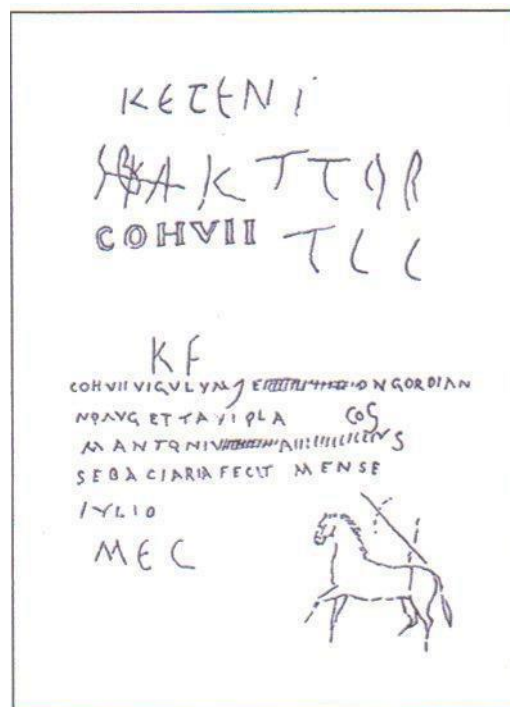 KETENI
AKTTQR
COHVII TLC
KF
COHVII VIGVLVM DNGORDIAN
NOAVG ETTAVIOLA COS
M ANTONIV S
SEBACIARIAFECIT MENSE
IVLIO
MEC